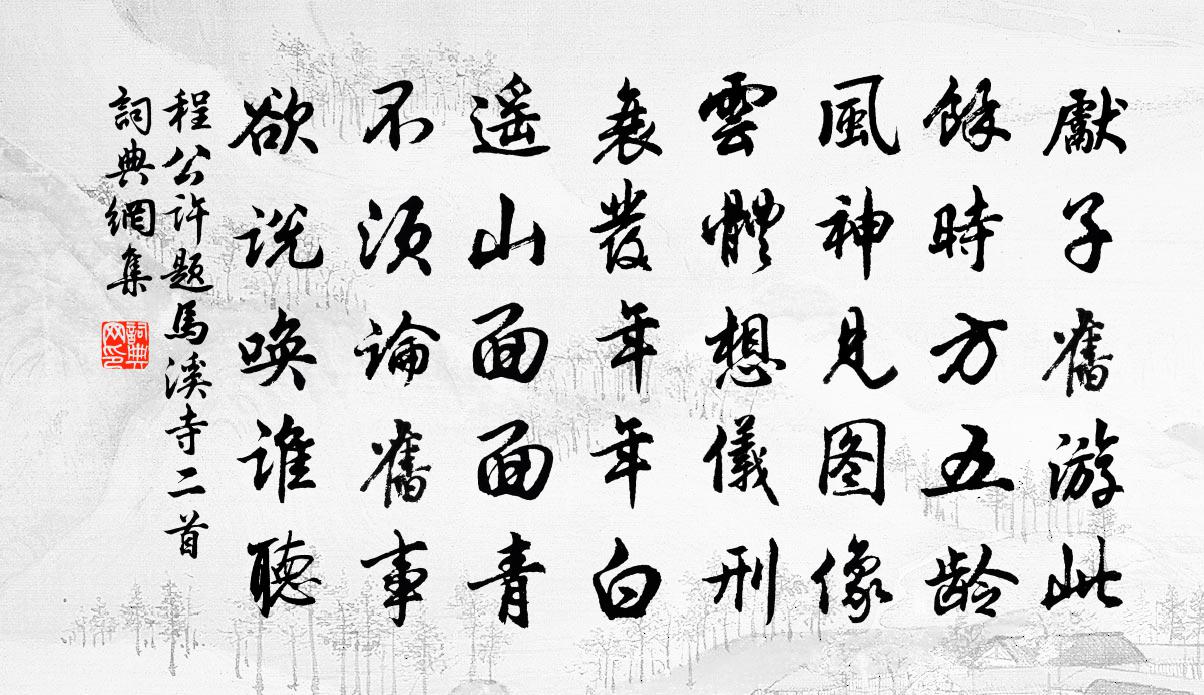 獻子舊游此
餘時方五龄
風神見图像
雲體想儀刑
衰发年年白
遥山面面青
不须論舊事
欲说唤谁聽
程公许题馬溪寺二首
詞典網集
詞典网印